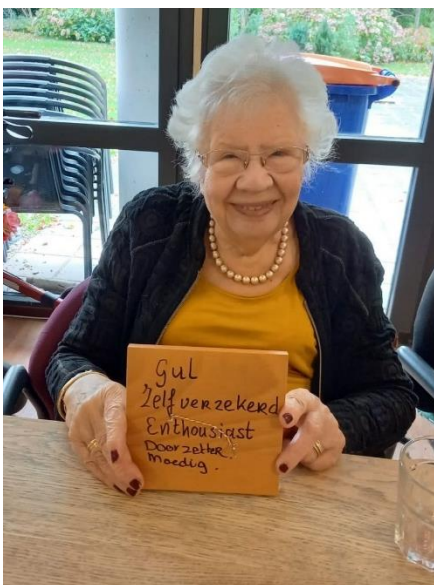 Gul
Zelfverzekerd
Enthousiast
Doorzetter.
Moedig.